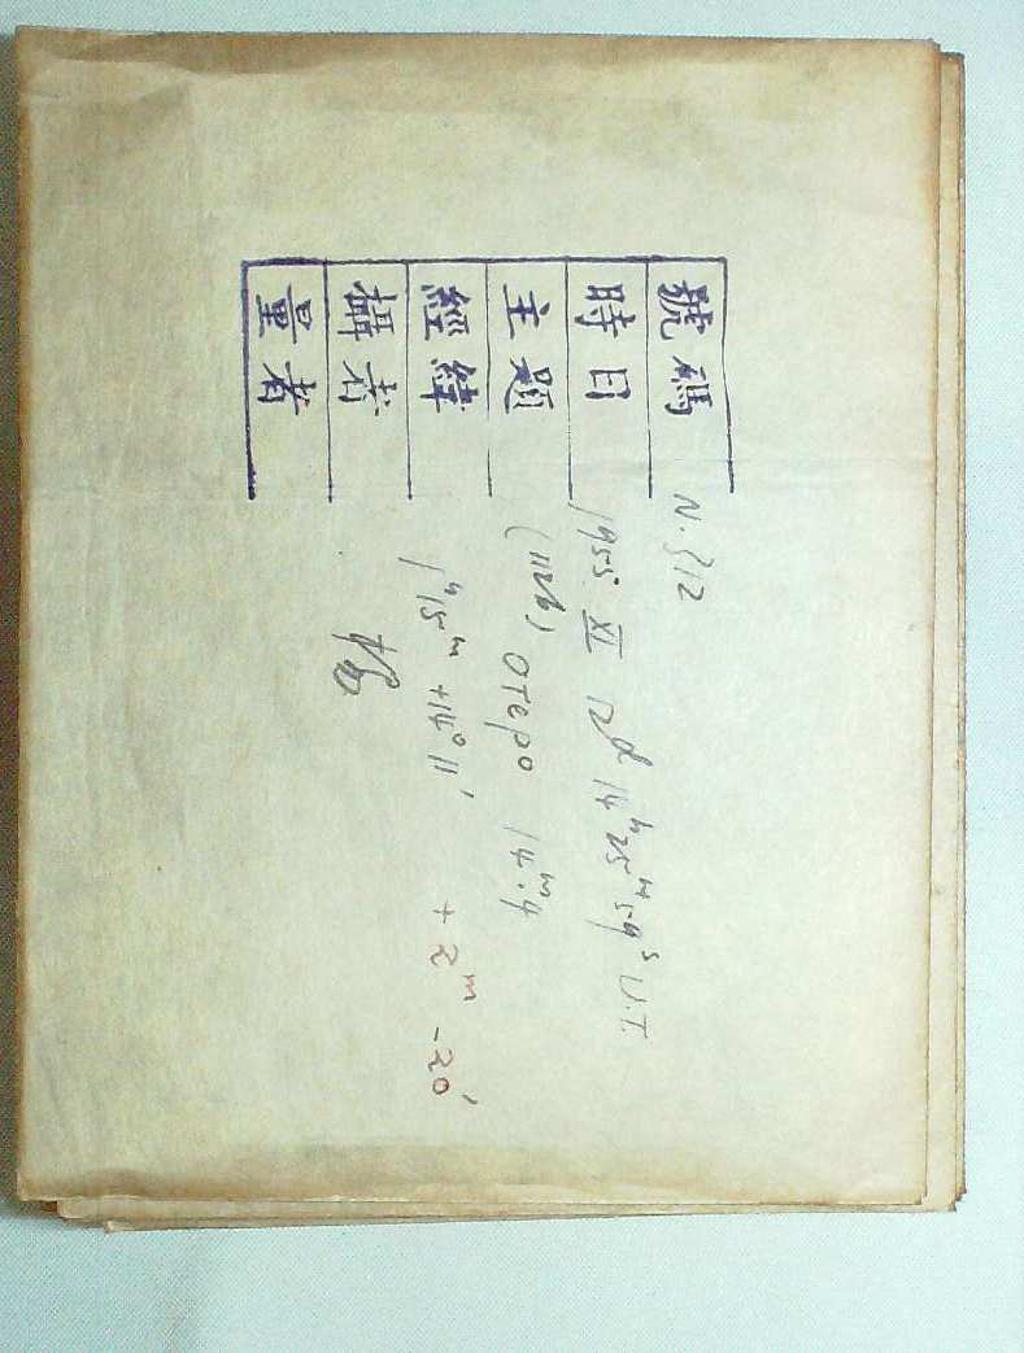 號碼 N.312
時日 1955 XI 12d 14h 25m 59s U.T.
主題 (1126) OTepo 14m.4
經緯 1h15m +14°11′ +2m -20′
攝者
量者